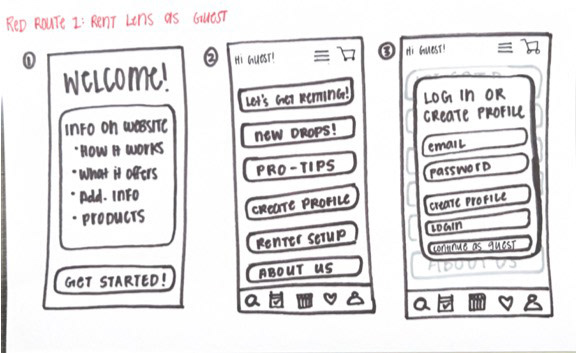 RED ROUTE 1: RENT LENS AS GUEST
1
WELCOME!
INFO ON WEBSITE
• HOW IT WORKS
• WHAT IT OFFERS
• ADD. INFO
• PRODUCTS
GET STARTED!
2
HI GUEST!
LET'S GET RENTING!
NEW DROPS!
PRO-TIPS
CREATE PROFILE
RENTER SETUP
ABOUT US
3
HI GUEST!
LOG IN OR
CREATE PROFILE
EMAIL
PASSWORD
CREATE PROFILE
LOGIN
CONTINUE AS GUEST
ABOUT US